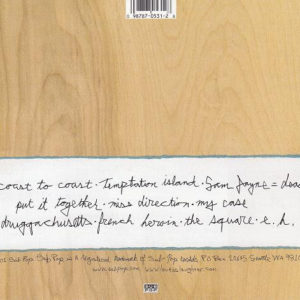 98787-0531-2
coast to coast · Temptation island · Sam Jayne = dead
put it together · miss direction · my case
druggachusetts · french heroin · the square · e.h.
Sub Pop Sub Pop is a registered trademark of Sub Pop Records P.O. Box 20645 Seattle WA
www.subpop.com
SUB POP